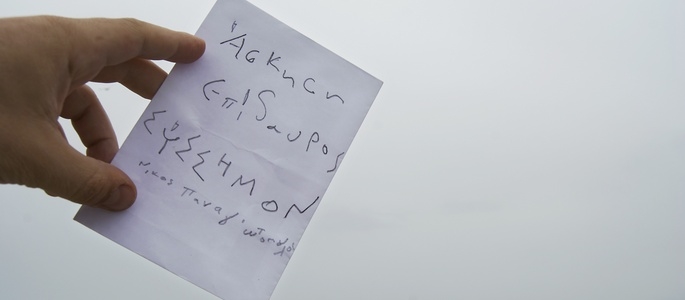 Άσκηση
Επίδαυρος
ΣΎΣΣΗΜΟΝ
Νίκος Παναγιωτόπουλος